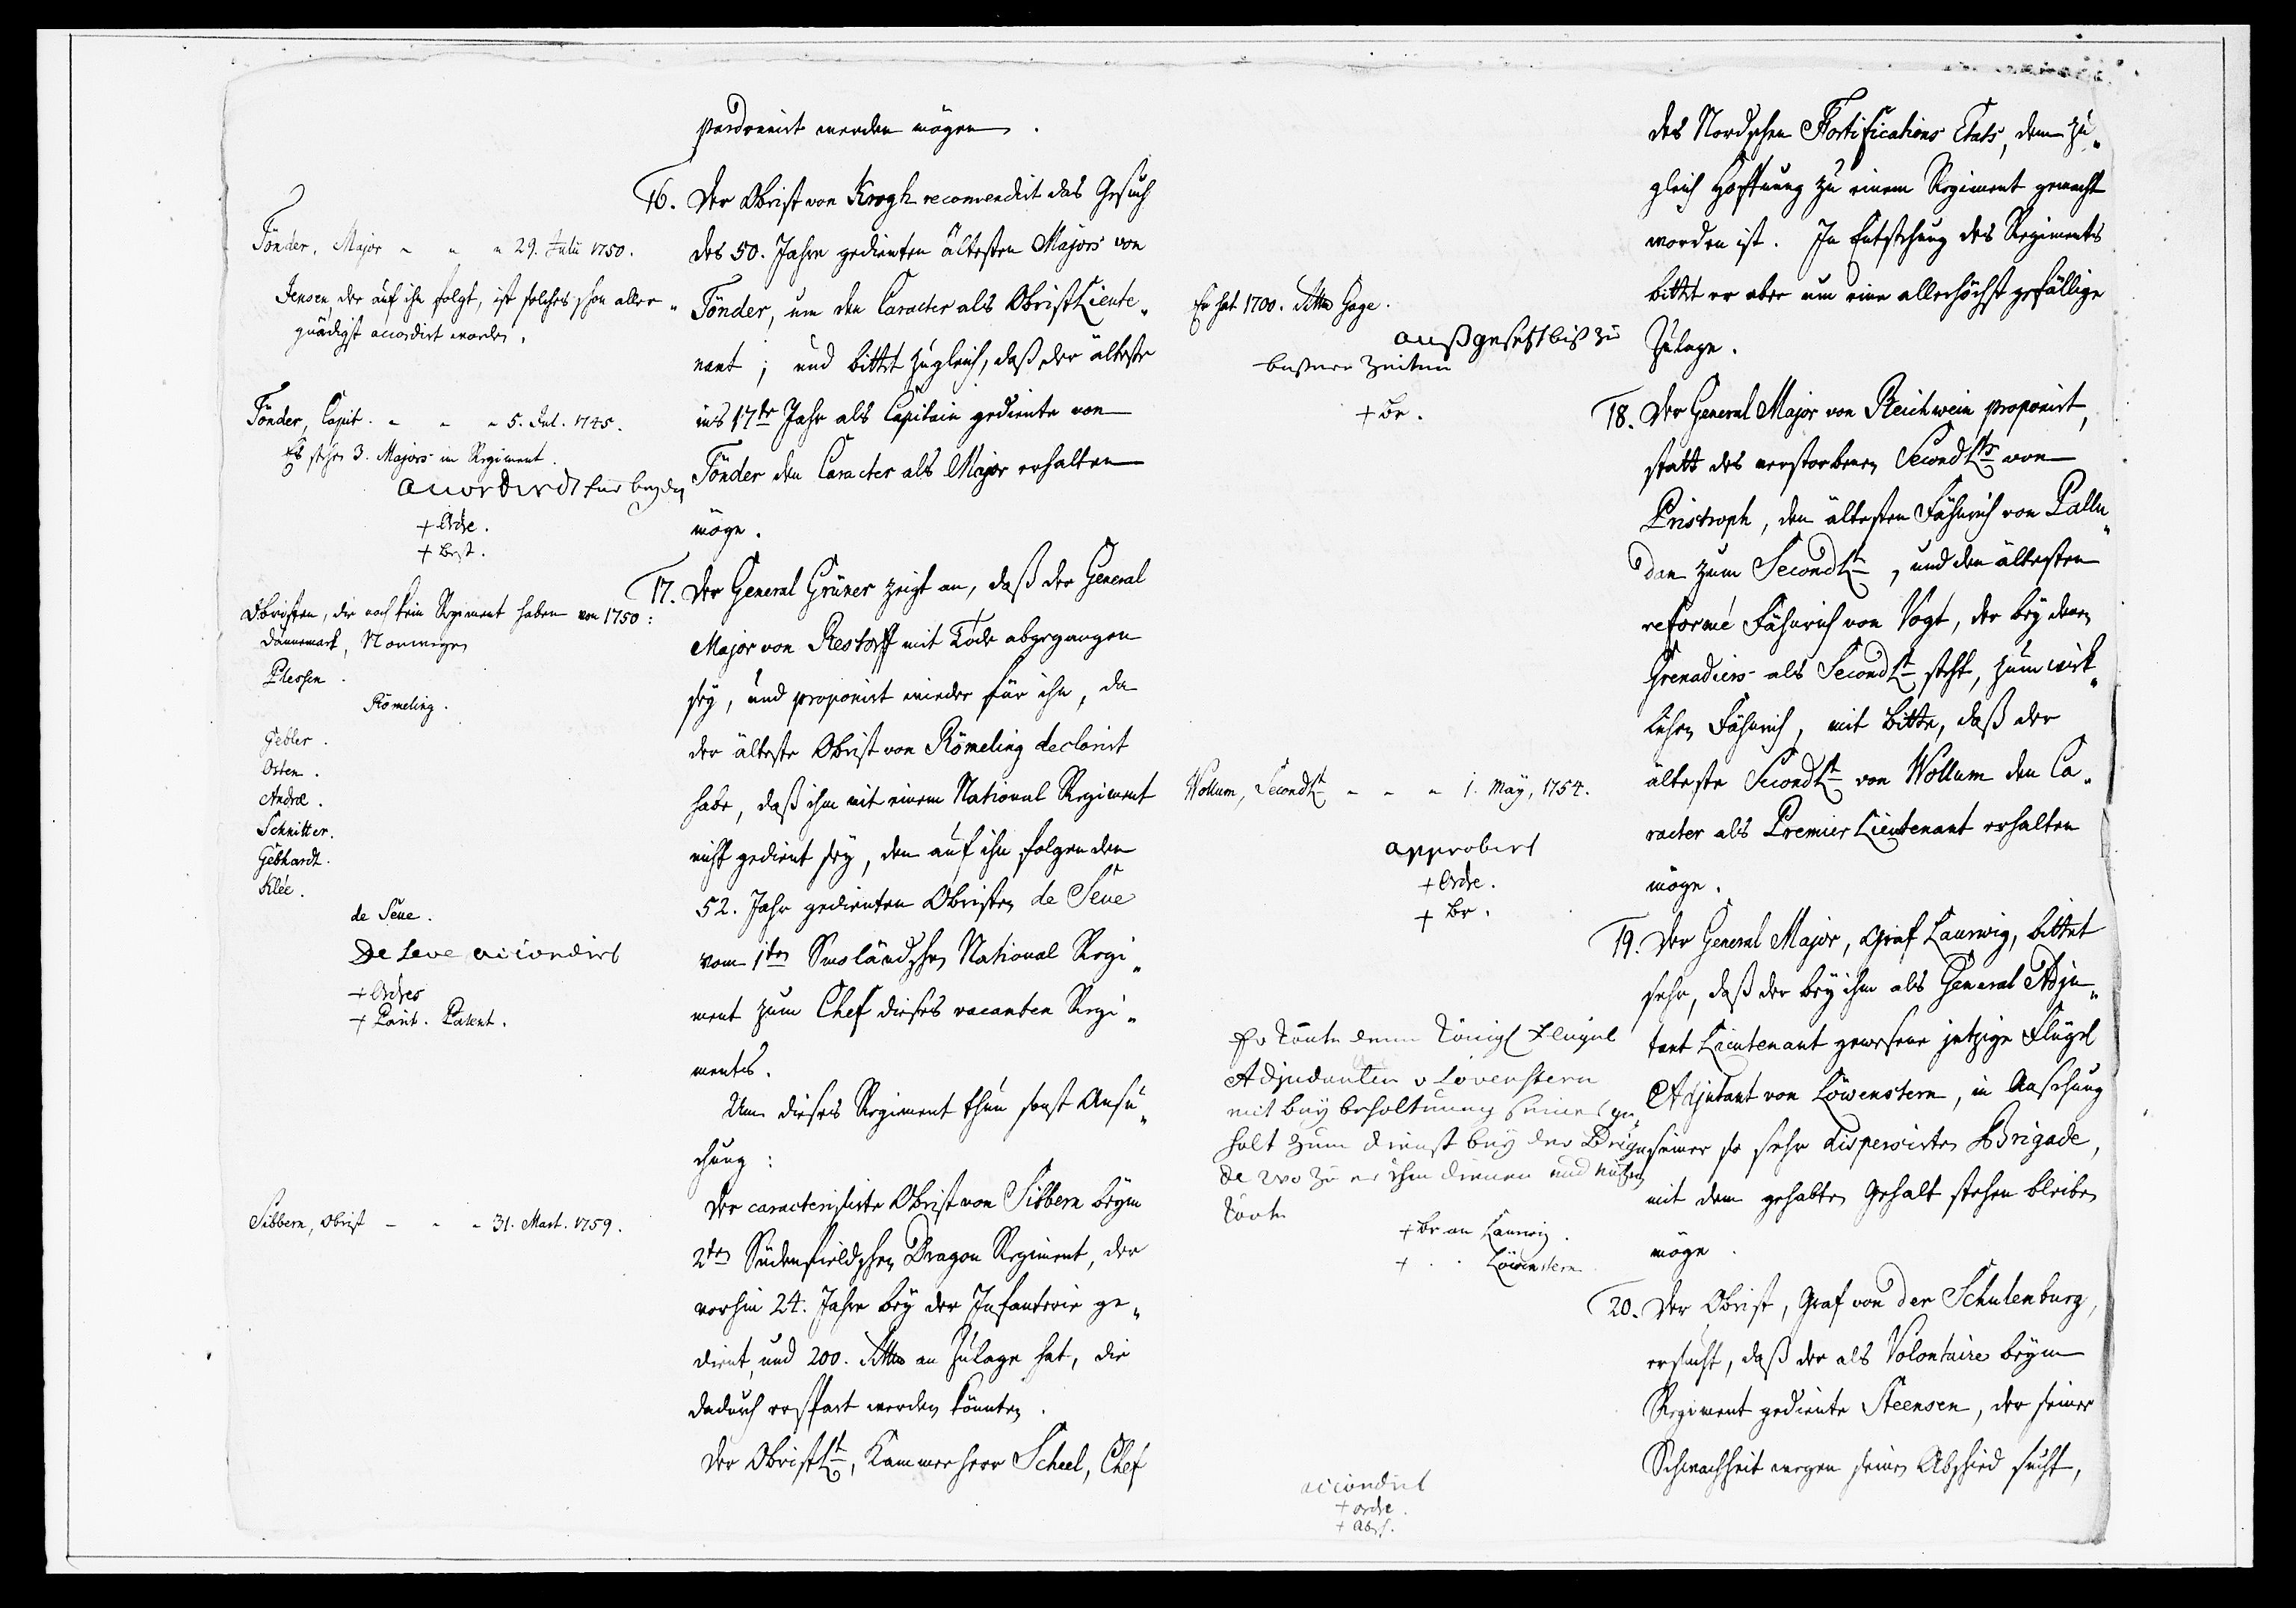 pardonnirt werden mögen.
16. Der Obrist von Krogh recomendirt das Gesuch
des 50. Jahre gedienten ältesten Majors von
Tönder, um den Caracter als ObristLieute„
nant; und bittet zugleich, daß der älteste
ins 17te Jahr als Capitain gediente von
Tönder den Caracter als Major erhalten
möge.
17. Der General Grüner zeigt an, daß der General
Major von Restorff mit Tode abgegangen
sey, und proponirt wieder für ihn, da
der älteste Obrist von Römeling declarirt
habe, daß ihm mit einem National Regiment
nicht gedient sey, den auf ihn folgenden
52. Jahr gedienten Obristen de Seue
vom 1ten Smaaländschen National Regi„
ment zum Chef dieses vacanten Regi„
ments.
Um dieses Regiment thun sonst Ansu„
chung:
Der caracterisirte Obrist von Sibbern beym
2ten Südenfieldschen Dragon Regiment, der
vorhin 24. Jahre bey der Infanterie ge„
dient, und 200. Rthlr an Zulage hat, die
dadurch erspart werden könnten.
Der ObristLt, Kammerherr Scheel, Chef
Tönder, Major „ „ „ 29. Julii 1750.
Jensen, der auf ihn folgt, ist solches schon aller„
gnädigst accordirt worden.
Tönder, Capit. „ „ „ 5. Jul. 1745.
Es stehen 3. Majors im Regiment.
accordirdt für beyde
+ Ordre.
+ Brst.
Obristen, die noch kein Regiment haben von 1750:
Dännemark, Norwegen
Plessen.
Römeling.
Gebler.
Osten.
Andræ.
Schnitter.
Gebhardt.
Klée.
de Seue.
De Seve accordirt
+ Ordres
+ Parit. Patent.
Sibbern, Obrist „ „ „ 31. Mart. 1759.
des Nordschen Fortifications Etats, dem zu„
gleich Hoffnung zu einem Regiment gemacht
worden ist. In Entstehung des Regiments
bittet er aber um eine allerhöchst gefällige
Zulage.
18. Der General Major von Reichwein proponirt,
statt des verstorbenen SecondLts von
Pristroph, den ältesten Fähnrich von Pallu„
dan zum SecondLt, und den ältesten
reformé Fähnrich von Vogt, der bey denen
Grenadiers als SecondLt steht, zum wirk„
lichen Fähnrich, mit Bitte, daß der
älteste SecondLt von Wollum den Ca„
racter als Premier Lieutenant erhalten
möge.
19. Der General Major, Graf Laurwig, bittet
sehr, daß der bey ihm als General Adju„
tant Lieutenant gewesene jetzige Flügel
Adjutant von Löwenstern, in Ansehung
seiner so sehr dispersirten Brigade,
mit dem gehabten Gehalt stehen bleiben
möge.
20. Der Obrist, Graf von der Schulenburg,
ersucht, daß der als Volontaire beym
Regiment gediente Steensen, der seiner
Schwachheit wegen seinen Abschied sucht,
Er hat 1700. Rthlr Gage.
außgesetzt biß zu
bessere Zeiten
+ Br.
Wollum, SecondLt „ „ „ 1. May, 1754.
approbirt
+ Ordre.
+ Br.
Er könte denn Königl Fleugel
Adjudanten v Lövenstern
mit beybehaltung seines ge„
halt zum dienst bey der Briga
de wo zu er ihm dienen und nutzen
könte
+ Br an Laurwig.
+ „ „ Löwenstern
accordirt
+ Ordre.
+ Absch.